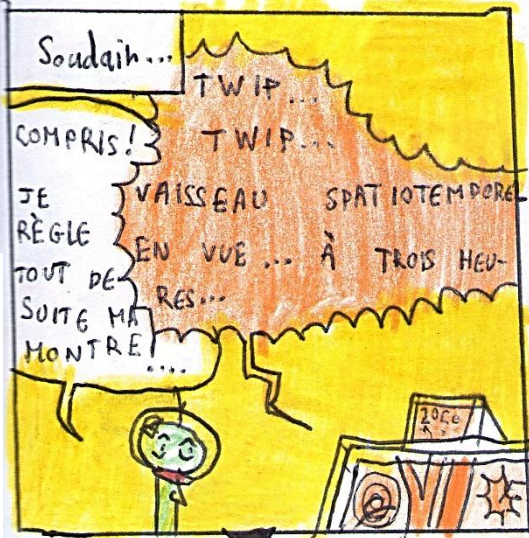 Soudain...
TWIP...
TWIP...
VAISSEAU SPATIOTEMPORE-
EN VUE... À TROIS HEU-
RES...
COMPRIS!
JE
RÈGLE
TOUT DE
SUITE MA
MONTRE
....